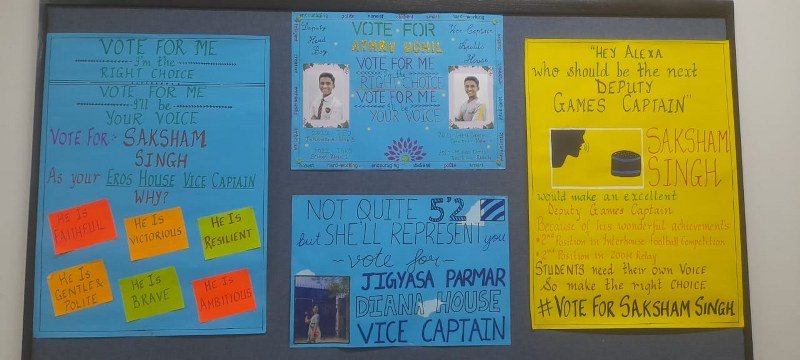 VOTE FOR ME
I'm the
RIGHT CHOICE
VOTE FOR ME
I'll be
YOUR VOICE
VOTE FOR:- SAKSHAM
SINGH
As your EROS HOUSE VICE CAPTAIN
WHY?
HE IS
FAITHFUL
HE IS
VICTORIOUS
HE IS
RESILIENT
HE IS
GENTLE &
POLITE
HE IS
BRAVE
HE IS
AMBITIOUS
encouraging polite honest talented smart hard-working
VOTE FOR
Deputy
Head
Boy
Vice Captain
Apollo
House
VOTE FOR ME
RIGHT CHOICE
VOTE FOR ME
YOUR VOICE
honest hard-working encouraging talented smart
NOT QUITE 5'2
but SHE'LL REPRESENT you
~vote for~
JIGYASA PARMAR
DIANA HOUSE
VICE CAPTAIN
"HEY ALEXA
who should be the next
DEPUTY
GAMES CAPTAIN"
SAKSHAM
SINGH
would make an excellent
Deputy Games Captain
Because of his wonderful achievements
• 2nd Position in Interhouse Football Competition
• 2nd Position in 200M Relay
STUDENTS need their own VOICE
So make the right CHOICE
#VOTE FOR SAKSHAM SINGH